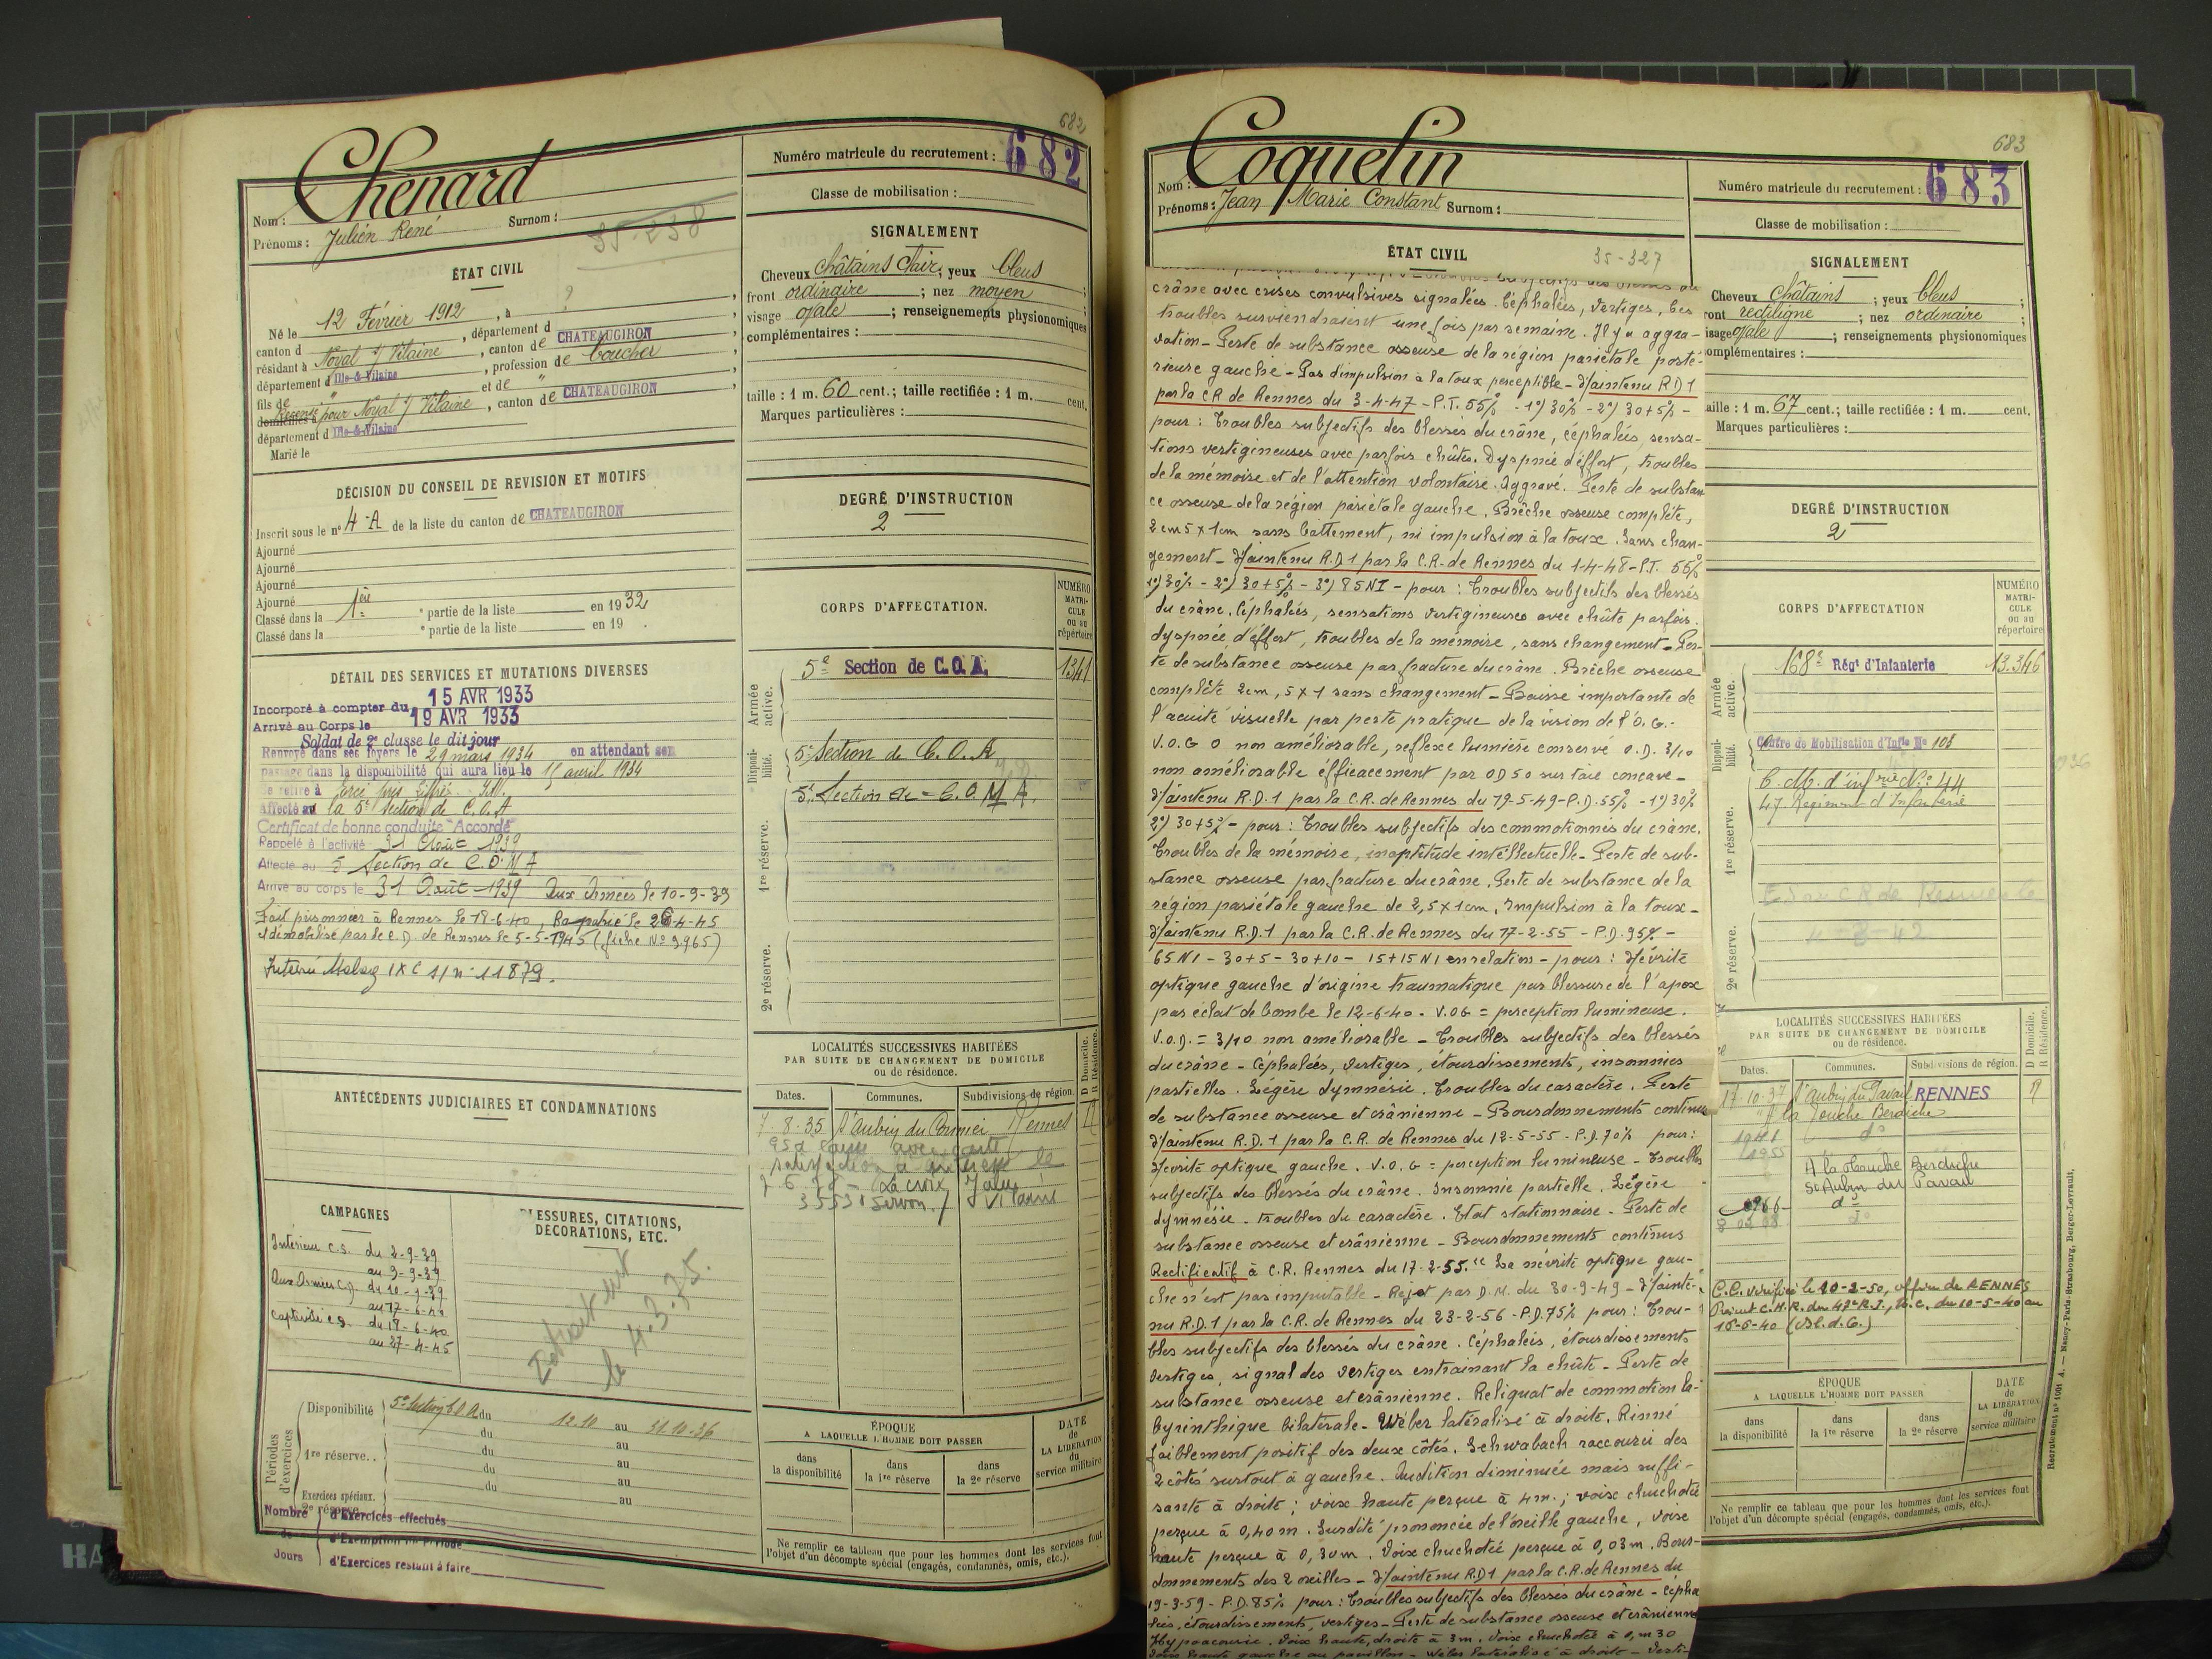 682
Chenard
Numéro matricule du recrutement : 682
Nom :
Prénoms : Julien René Surnom :
35-238
Classe de mobilisation :
ÉTAT CIVIL
Né le 12 Février 1912, à ?
canton d , département d
résidant à Noyal s/ Vilaine, canton de CHATEAUGIRON
département d Ille-&-Vilaine, profession de boucher
fils de " et de "
domiciliés à Recensé pour Noyal s/ Vilaine, canton de CHATEAUGIRON
département d Ille-&-Vilaine
Marié le
SIGNALEMENT
Cheveux châtains clair; yeux bleus
front ordinaire ; nez moyen
visage ovale ; renseignements physionomiques
complémentaires :
taille : 1 m. 60 cent.; taille rectifiée : 1 m. cent.
Marques particulières :
DÉCISION DU CONSEIL DE REVISION ET MOTIFS
Inscrit sous le n° 4-A de la liste du canton de CHATEAUGIRON
Ajourné
Ajourné
Ajourné
Ajourné
Classé dans la 1ère ° partie de la liste en 1932
Classé dans la ° partie de la liste en 19 .
DEGRÉ D'INSTRUCTION
2
DÉTAIL DES SERVICES ET MUTATIONS DIVERSES
Incorporé à compter du 15 AVR 1933
Arrivé au Corps le 19 AVR 1933
Soldat de 2e classe le dit jour
Renvoyé dans ses foyers le 29 mars 1934 en attendant son
passage dans la disponibilité qui aura lieu le 15 avril 1934
Se retire à
Affecté au la 5e section de C.O.A
Certificat de bonne conduite "Accordé"
Rappelé à l'activité 31 Août 1939
Affecté au 5 Section de C.O.M.A
Arrivé au corps le 31 Août 1939 Aux Armées le 10-9-39
Fait prisonnier à Rennes le 18-6-40, Rapatrié le 26-4-45
et démobilisé par le C.D. de Rennes le 5-5-1945 (fiche No 3.965)
Interné Stalag IX C n° 11879.
CORPS D'AFFECTATION.
NUMÉRO MATRICULE ou au répertoire
Armée active.
5e Section de C.O.A. 1341
Disponibilité.
5e Section de C.O.A
5e Section de C.O.M.A.
1re réserve.
2e réserve.
ANTÉCÉDENTS JUDICIAIRES ET CONDAMNATIONS
LOCALITÉS SUCCESSIVES HABITÉES
PAR SUITE DE CHANGEMENT DE DOMICILE
ou de résidence.
D Domicile.
R Résidence.
Dates. Communes. Subdivisions de région.
7-8-35 St Aubin du Cormier Rennes
La croix
Servon s/ Vilaine
CAMPAGNES
Intérieur C.S. du 2-9-39
au 9-9-39
Aux Armées C.D. du 10-9-39
au 17-6-40
Captivité C.S. du 18-6-40
au 27-4-45
BLESSURES, CITATIONS,
DÉCORATIONS, ETC.
le 4.3.75.
Périodes d'exercices
Disponibilité 5e Section C.O.A du 12.10 au 31.10.36
du au
1re réserve.. du au
du au
du au
Exercices spéciaux. au
2e réserve
Nombre de Jours
d'Exercices effectués
d'Exemption de Période
d'Exercices restant à faire
ÉPOQUE
A LAQUELLE L'HOMME DOIT PASSER
dans la disponibilité
dans la 1re réserve
dans la 2e réserve
DATE de LA LIBÉRATION du service militaire
Ne remplir ce tableau que pour les hommes dont les services font
l'objet d'un décompte spécial (engagés, condamnés, omis, etc.).
683
Coquelin
Numéro matricule du recrutement : 683
Nom :
Prénoms : Jean Marie Constant Surnom :
Classe de mobilisation :
ÉTAT CIVIL
35-327
crâne avec crises convulsives signalées. Céphalées, vertiges, ces
troubles surviendraient une fois par semaine. Il y a aggra-
vation - Perte de substance osseuse de la région pariétale posté-
rieure gauche - Pas d'impulsion à la toux perceptible - Maintenu R.D 1
par la C.R de Rennes du 3-4-47 - P.T. 55% - 1°) 30% - 2°) 30+5% -
pour : Troubles subjectifs des blessés du crâne, céphalées, sensa-
tions vertigineuses avec parfois chûtes. Dyspnée d'effort, troubles
de la mémoire et de l'attention volontaire. Aggravé. Perte de substan
ce osseuse de la région pariétale gauche. Brèche osseuse complète,
2cm5 x 1cm sans battement, ni impulsion à la toux. Sans chan-
gement - Maintenu R.D.1 par la C.R. de Rennes du 1-4-48 - P.T. 55%
1°) 30% - 2°) 30+5% - 3°) 85 NI - pour : Troubles subjectifs des blessés
du crâne. Céphalées, sensations vertigineuses avec chûte parfois.
dyspnée d'effort, troubles de la mémoire, sans changement - Per-
te de substance osseuse par fracture du crâne. Brèche osseuse
complète 2cm,5 x 1 sans changement - Baisse importante de
l'acuité visuelle par perte pratique de la vision de l'O.G. -
V.O.G 0 non améliorable, réflexe lumière conservé O.D. 3/10
non améliorable éfficacement par OD 50 sur taie concave -
Maintenu R.D.1 par la C.R. de Rennes du 19-5-49 - P.D. 55% - 1°) 30%
2°) 30+5% - pour : Troubles subjectifs des commotionnés du crâne.
Troubles de la mémoire, inaptitude intellectuelle - Perte de sub-
stance osseuse par fracture du crâne. Perte de substance de la
région pariétale gauche de 2,5 x 1cm. Impulsion à la toux -
Maintenu R.D.1 par la C.R. de Rennes du 17-2-55 - P.D. 95% -
65 NI - 30+5 - 30+10 - 15+15 NI en relation - pour : Névrite
optique gauche d'origine traumatique par blessure de l'apex
par éclat de bombe le 12-6-40. V.OG = perception lumineuse.
V.O.D. = 3/10 non améliorable - Troubles subjectifs des blessés
du crâne - Céphalées, vertiges, étourdissements, insomnies
partielles. Légère dymnésie. Troubles du caractère. Perte
de substance osseuse et crânienne - Bourdonnements continus
Maintenu R.D.1 par la C.R. de Rennes du 12-5-55 - P.D. 70% pour :
Névrite optique gauche. V.O.G = perception lumineuse - Troubles
subjectifs des blessés du crâne. Insomnie partielle. Légère
dymnésie - troubles du caractère. Etat stationnaire - Perte de
substance osseuse et crânienne - Bourdonnements continus
Rectificatif à C.R. Rennes du 17-2-55. "La névrite optique gau-
che n'est pas imputable - Rejet par D.M. du 30-9-49 - Mainte-
nu R.D.1 par la C.R. de Rennes du 23-2-56 - P.D. 75% pour : Trou-
bles subjectifs des blessés du crâne. Céphalées, étourdissements
vertiges, signal des vertiges entrainant la chûte - Perte de
substance osseuse et crânienne. Reliquat de commotion la-
byrinthique bilatérale - Wéber latéralisé à droite. Rinné
faiblement positif des deux côtés. Schwabach raccourci des
2 côtés surtout à gauche. Audition diminuée mais suffi-
sante à droite ; voix haute perçue à 4m. ; voix chuchotée
perçue à 0,40 m. Surdité prononcée de l'oreille gauche, voix
haute perçue à 0,30m. Voix chuchotée perçue à 0,03m. Bour-
donnements des 2 oreilles - Maintenu R.D1 par la C.R. de Rennes du
19-3-59 - P.D. 85% pour : Troubles subjectifs des blessés du crâne - Cépha
lées, étourdissements, vertiges - Perte de substance osseuse et crânienne
Hypoacousie. Voix haute, droite à 3m. Voix chuchotée à 0,m30
Voix haute gauche au pavillon - Wéber latéralisé à droite - Verti-
SIGNALEMENT
Cheveux châtains ; yeux bleus
ront rectiligne ; nez ordinaire
isage ovale ; renseignements physionomiques
omplémentaires :
aille : 1 m. 67 cent.; taille rectifiée : 1 m. cent.
Marques particulières :
DEGRÉ D'INSTRUCTION
2
CORPS D'AFFECTATION
NUMÉRO MATRICULE ou au répertoire
Armée active.
168e Régt d'Infanterie 13.346
Disponibilité.
Centre de Mobilisation d'Infie No 103
C.M. d'infrie No 44
47 Régiment d'Infanterie
1re réserve.
2e réserve.
LOCALITÉS SUCCESSIVES HABITÉES
PAR SUITE DE CHANGEMENT DE DOMICILE
ou de résidence.
D Domicile.
R Résidence.
Dates. Communes. Subdivisions de région.
17-10-37 St Aubin du Pavail RENNES R
1941 do
1955 A la Touche Berdiche
St Aubin du Pavail
1966 do
C.C. vérifiée le 10-2-50, offrn de RENNES
10-5-40 au
ÉPOQUE
A LAQUELLE L'HOMME DOIT PASSER
dans la disponibilité
dans la 1re réserve
dans la 2e réserve
DATE de LA LIBÉRATION du service militaire
Ne remplir ce tableau que pour les hommes dont les services font
l'objet d'un décompte spécial (engagés, condamnés, omis, etc.).
Recrutement n° 1001 A. — Nancy-Paris-Strasbourg, Berger-Levrault.